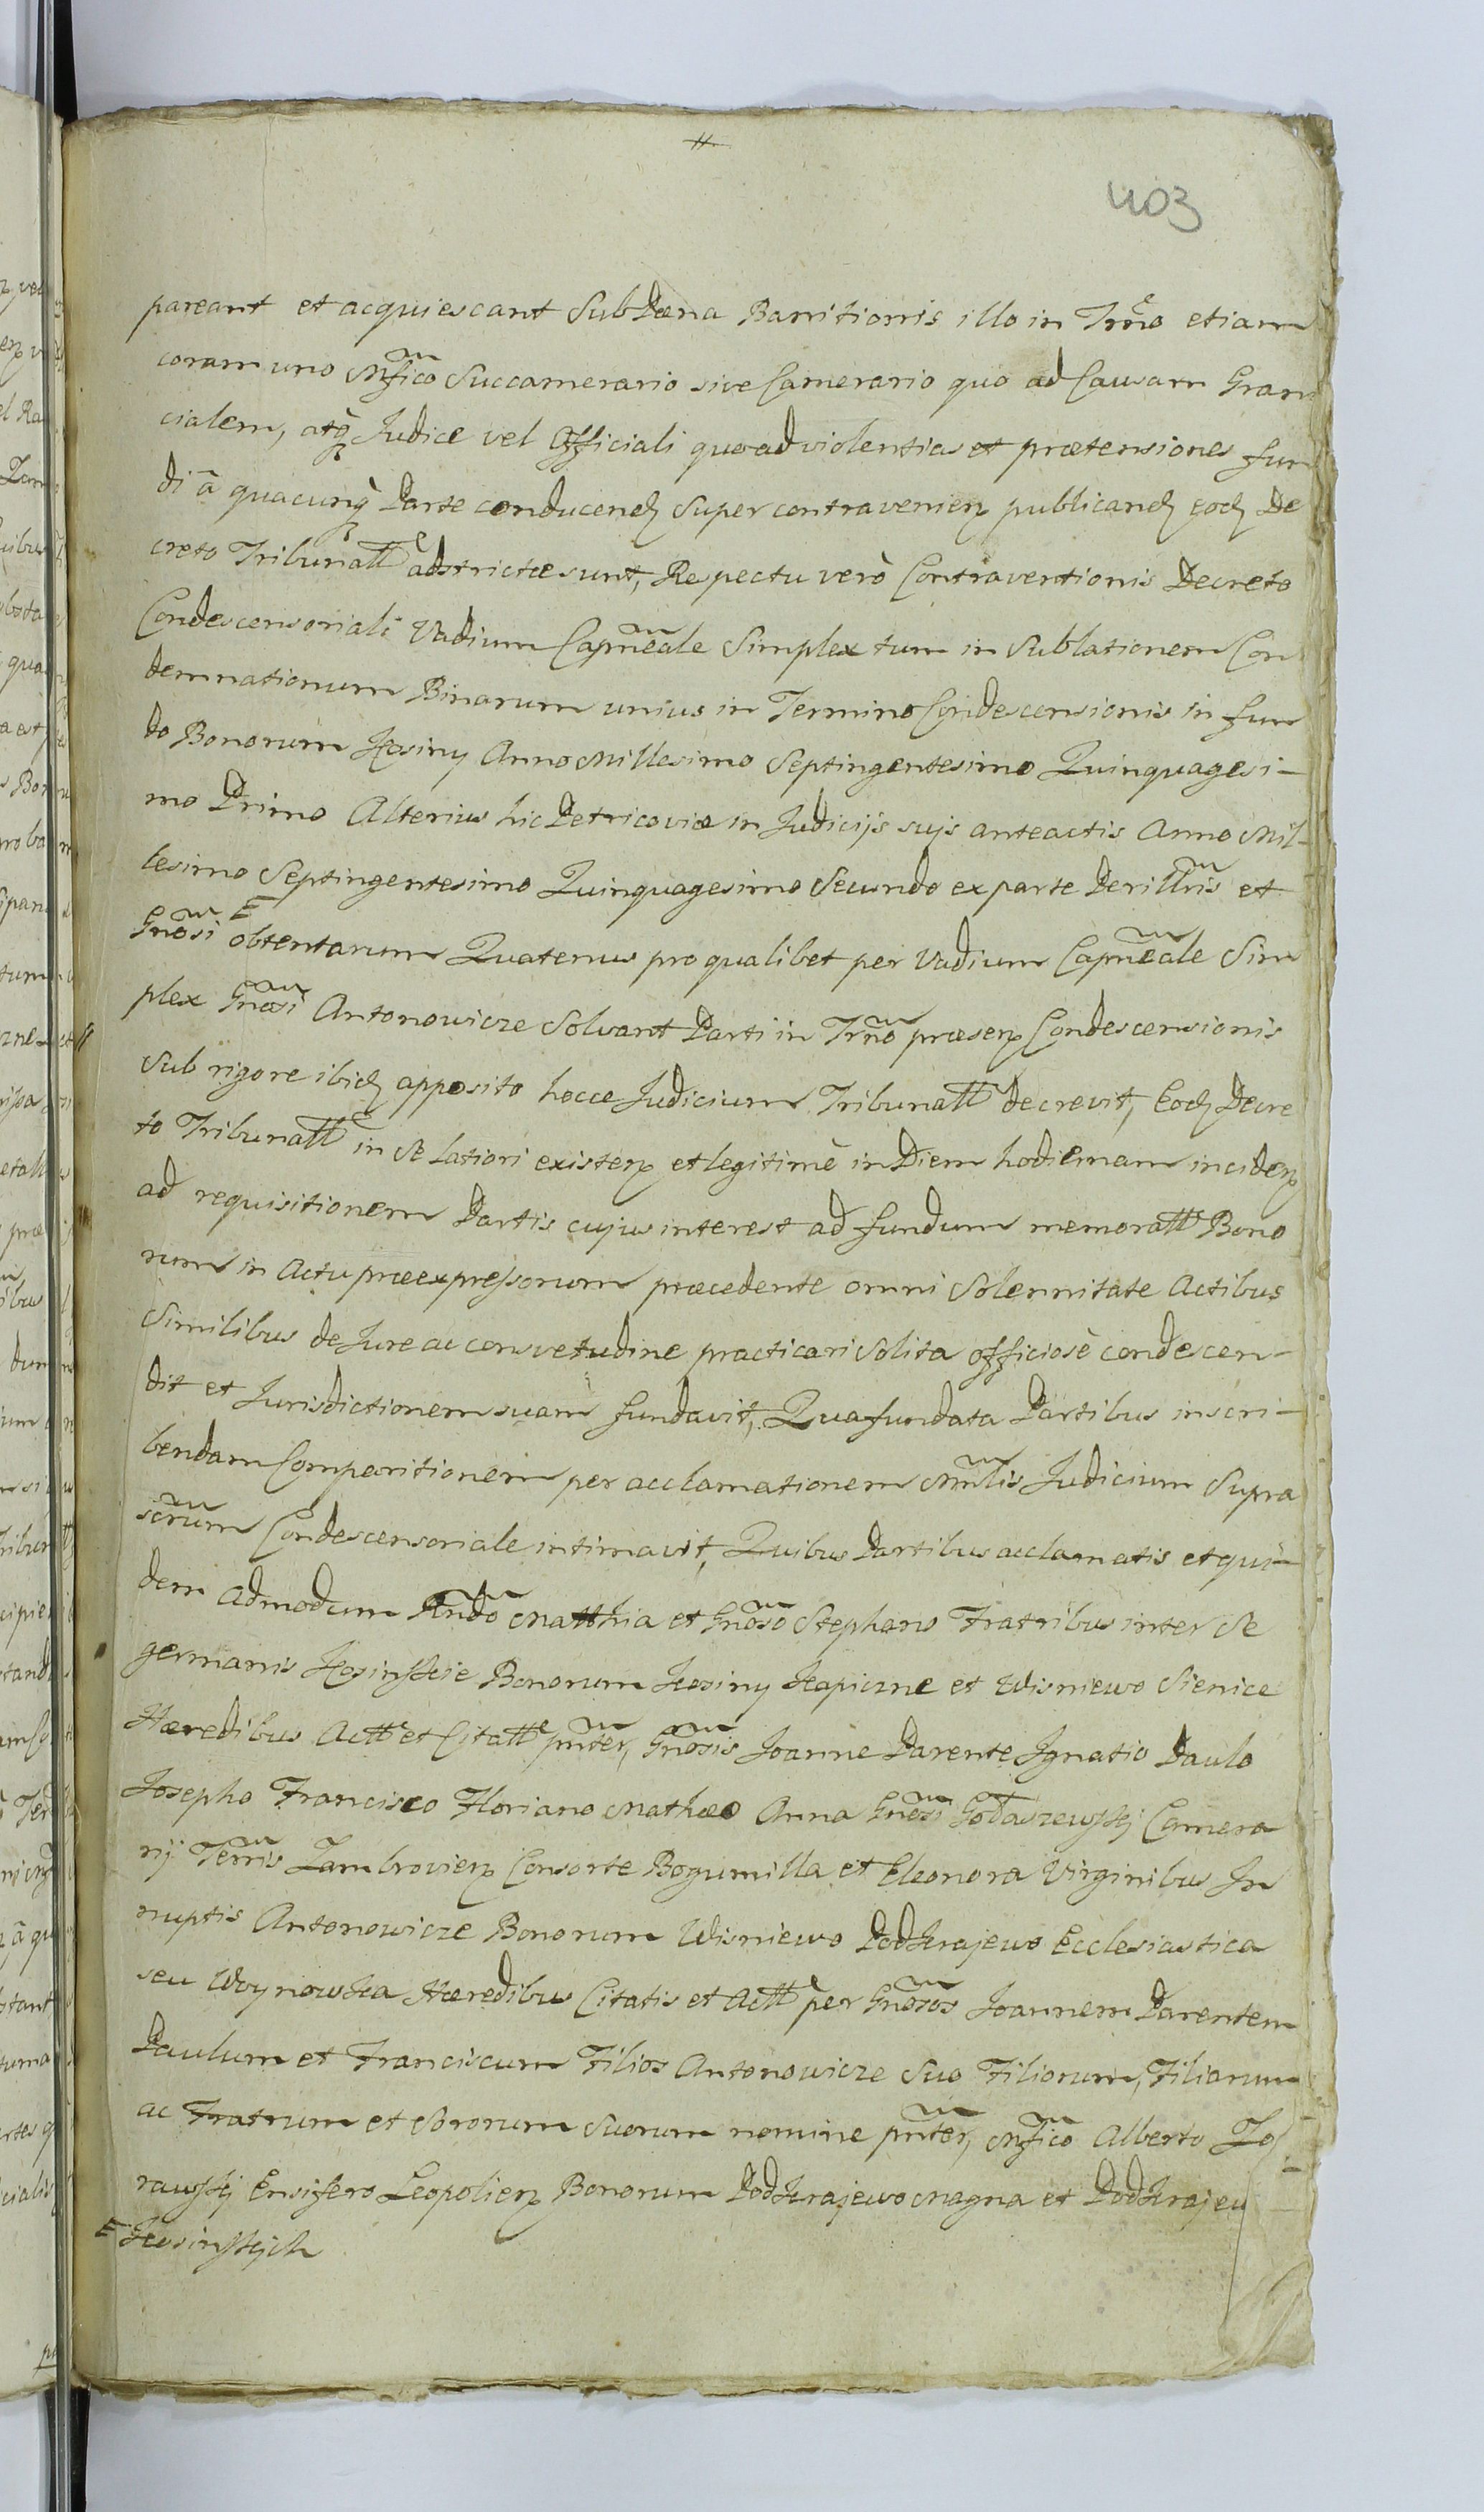 403
pareant et acquiescant Sub Pæna Bannitionis illo in Trno etiam
coram uno Mfico Succamerario sive Camerario quo ad Causam Gran
cialem, atq Judice vel Officiali quoad violentias et prætensiones fun
di à quacunq Parte conducend Super contravenien publicand eod De
creto Tribunall adstrictæ sunt, Respectu verò Contraventionis Decreto
Condescensoriali Vadium Capneale Simplex tum in Sublationem Con
demnationum Binarum unius in Termino Condescensionis in fun
do Bonorum Kosiny Anno Millesimo Septingentesimo Quinquagesi-
mo Primo Alterius hic Petricoviæ in Judicijs sujs anteactis Anno Mil-
lesimo Septingentesimo Quinquagesimo Secundo ex parte Perillris et
Gnosi obtentarum Quatenus pro qualibet per Vadium Capneale Sim
plex Gnosi Antonowicze Solvant Parti in Trno præsen Condescensionis
Sub rigore ibid apposito hocce Judicium Tribunall decrevit, Eod Decre
to Tribunall in Se latiori existen et legitimè in Diem hodiernam inciden
ad requisitionem Partis cujus interest ad fundum memoratt Bono
rum in Actu præexpressorum præcedente omni Solennitate Actibus
Similibus de Jure ac consvetudine practicari Solita officiosè condescen-
dit et Jurisdictionem suam fundavit, Qua fundata Partibus inscri-
bendam Comparitionem per acclamationem Mnlis Judicium Supra
scrum Condescensoriale intimavit, Quibus Partibus acclamatis et qui-
dem Admodum Rndo Matthia et Gnoso Stephano Fratribus inter Se
germanis Kosinskie Bonorum Kosiny Kapiczne et Wisniewo Sienice
Hæredibus Actt et Citatt pnter, Gnosis Joanne Parente Ignatio Paulo
Josepho Francisco Floriano Mathæo Anna Gnosi Gołaszewskj Camera
rij Terris Zambrovien Consorte Bogumilla et Eleonora Virginibus In
nuptis Antonowicze Bonorum Wisniewo Podkrajewo Ecclesiastica
seu Woynowska Hæredibus Citatis et Actt per Gnosos Joannem Parentem
Paulum et Franciscum Filios Antonowicze Suo Filiorum, Filiarum
ac Fratrum et Sororum Suorum nomine pnter, Mfico Alberto Zo
rawskj Ensifero Leopolien Bonorum Podkrajewo Magna et Podkrajew
Kosinskjch